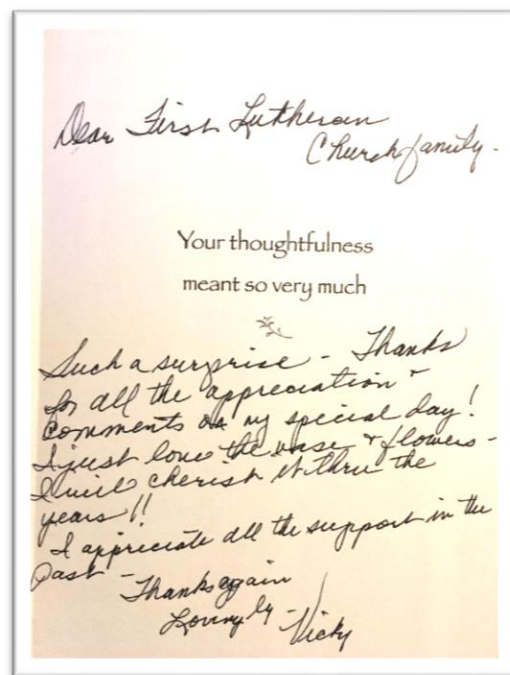 Dear First Lutheran
Church family -
Your thoughtfulness
meant so very much
Such a surprise - Thanks
for all the appreciation &
comments on my special day!
I just love the vase & flowers -
I will cherish it thru the
years!!
I appreciate all the support in the
past -
Thanks again
Lovingly -
Vicky